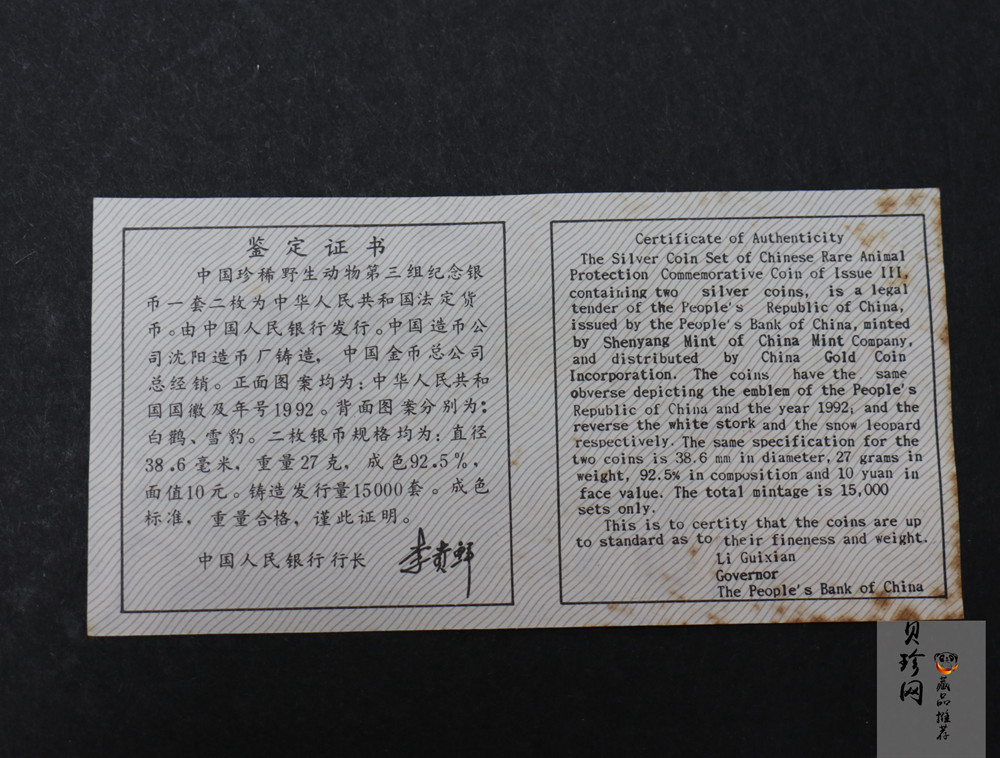 鉴定证书
中国珍稀野生动物第三组纪念银
币一套二枚为中华人民共和国法定货
币。由中国人民银行发行。中国造币公
司沈阳造币厂铸造，中国金币总公司
总经销。正面图案均为：中华人民共和
国国徽及年号1992。背面图案分别为：
白鹳、雪豹。二枚银币规格均为：直径
38.6毫米，重量27克，成色92.5%，
面值10元。铸造发行量15000套。成色
标准，重量合格，谨此证明。
中国人民银行行长 李贵鲜
Certificate of Authenticity
The Silver Coin Set of Chinese Rare Animal
Protection Commemorative Coin of Issue III,
containing two silver coins, is a legal
tender of the People's Republic of China,
issued by the People's Bank of China, minted
by Shenyang Mint of China Mint Company,
and distributed by China Gold Coin
Incorporation. The coins have the same
obverse depicting the emblem of the People's
Republic of China and the year 1992; and the
reverse the white stork and the snow leopard
respectively. The same specification for the
two coins is 38.6 mm in diameter, 27 grams in
weight, 92.5% in composition and 10 yuan in
face value. The total mintage is 15,000
sets only.
This is to certity that the coins are up
to standard as to their fineness and weight.
Li Guixian
Governor
The People's Bank of China
贝珍网
藏品推荐